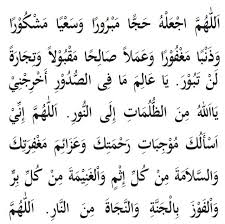 اَللّٰهُمَّ اجْعَلْهُ حَجًّا مَبْرُورًا وَسَعْيًا مَشْكُورًا
وَذَنْبًا مَغْفُورًا وَعَمَلاً صَالِحًا مَقْبُولاً وَتِجَارَةً
لَنْ تَبُورَ. يَا عَالِمَ مَا فِى الصُّدُورِ أَخْرِجْنِيْ
يَااَللهُ مِنَ الظُّلُمَاتِ إِلَى النُّورِ. اَللّٰهُمَّ إِنِّيْ
اَسْأَلُكَ مُوْجِبَاتِ رَحْمَتِكَ وَعَزَائِمَ مَغْفِرَتِكَ
وَالسَّلاَمَةَ مِنْ كُلِّ إِثْمٍ وَالْغَنِيْمَةَ مِنْ كُلِّ بِرٍّ
وَالْفَوْزَ بِالْجَنَّةِ وَالنَّجَاةَ مِنَ النَّارِ. اَللّٰهُمَّ